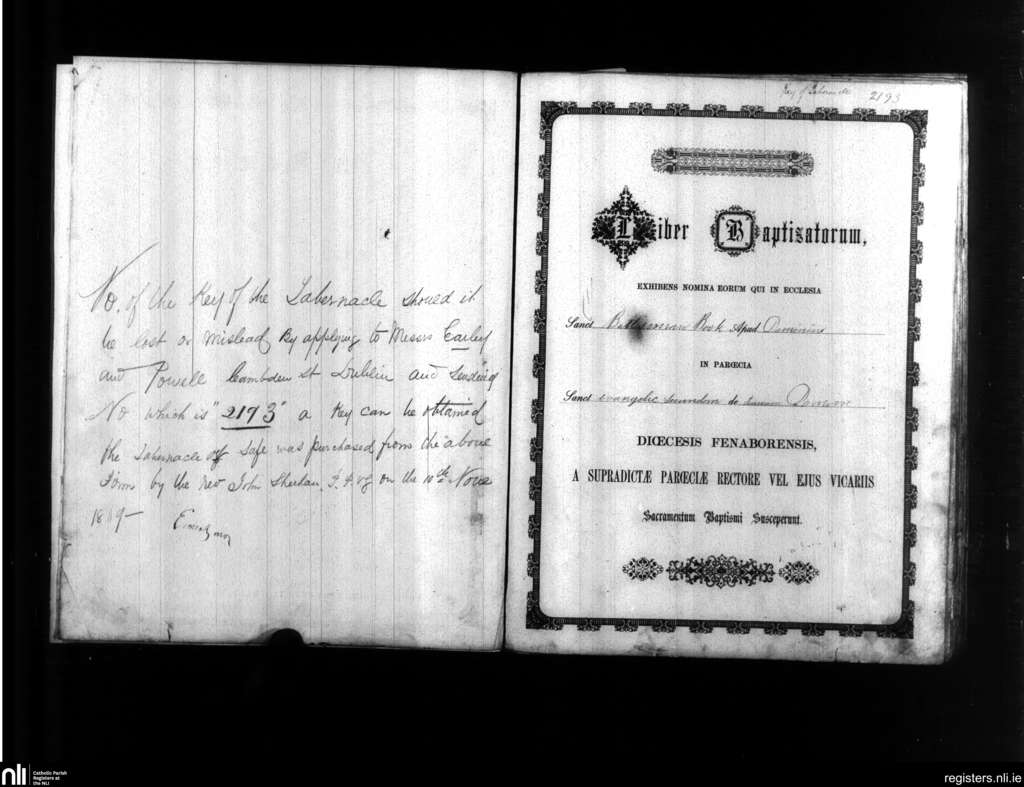 No. of the Key of the Tabernacle should it
be lost or mislead By applying to Messrs Earley
and Powell Cambden St Dublin and Sending
No which is "2193" a Key can be obtained
the Tabernacle of Safe was purchased from the above
Firm by the Rev John Sheehan P.P. of on the 10th Nove
18 9—
Key of Tabernacle 2193
Liber Baptizatorum,
EXHIBENS NOMINA EORUM QUI IN ECCLESIA
Sanct Apud
IN PARŒCIA
Sanct evangelic secundum
DIŒCESIS FENABORENSIS,
A SUPRADICTÆ PARŒCIÆ RECTORE VEL EJUS VICARIIS
Sacramentum Baptismi Susceperunt.
nli
Catholic Parish
Registers at
the NLI
registers.nli.ie